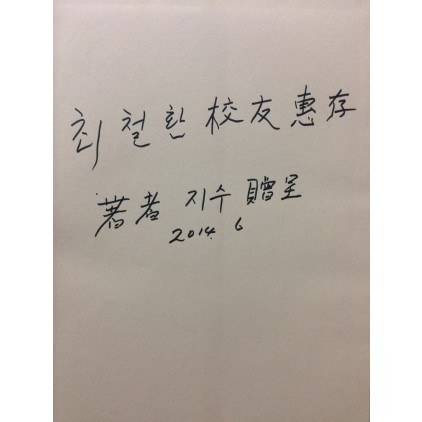 최철환 校友惠存
著者 지수 贈呈
2014. 6